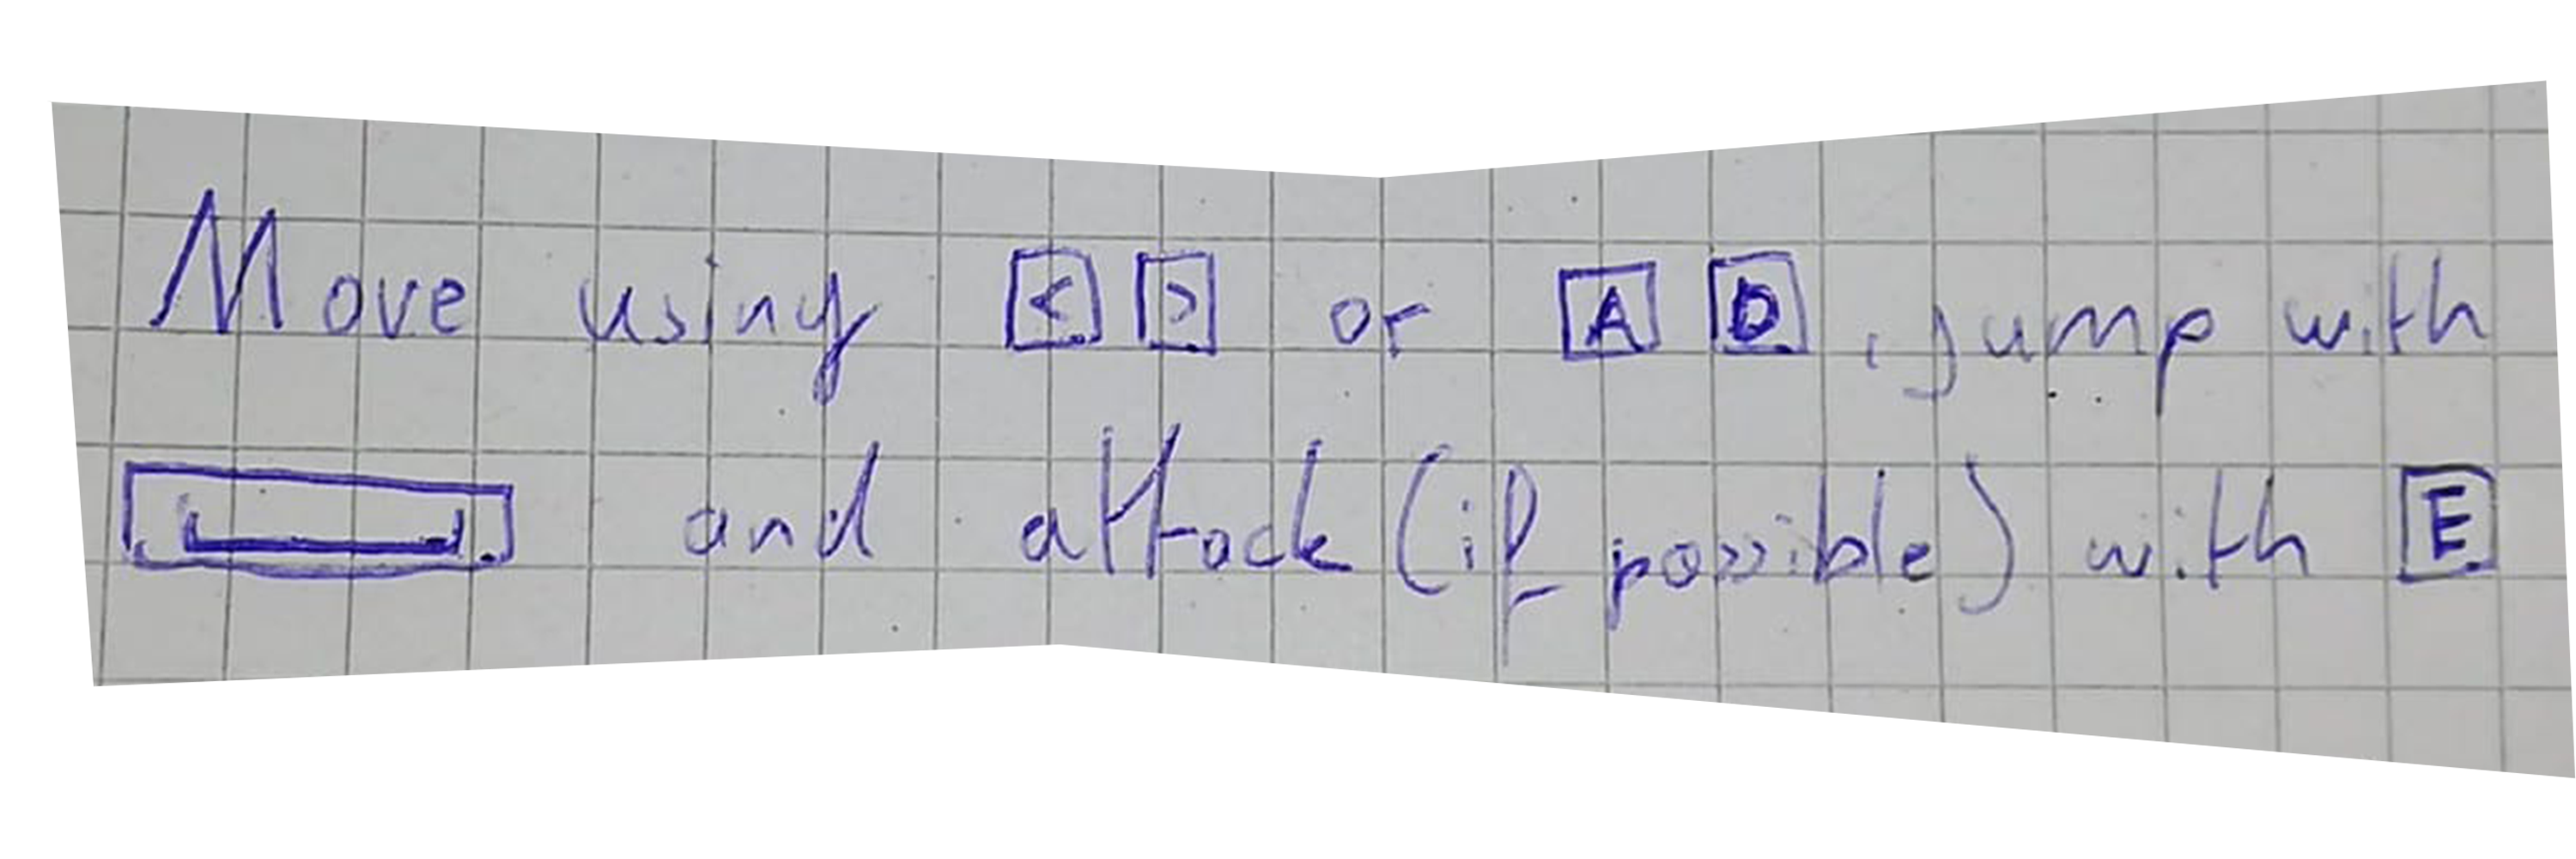 Move using < > or A D, jump with
and attack (if possible) with E